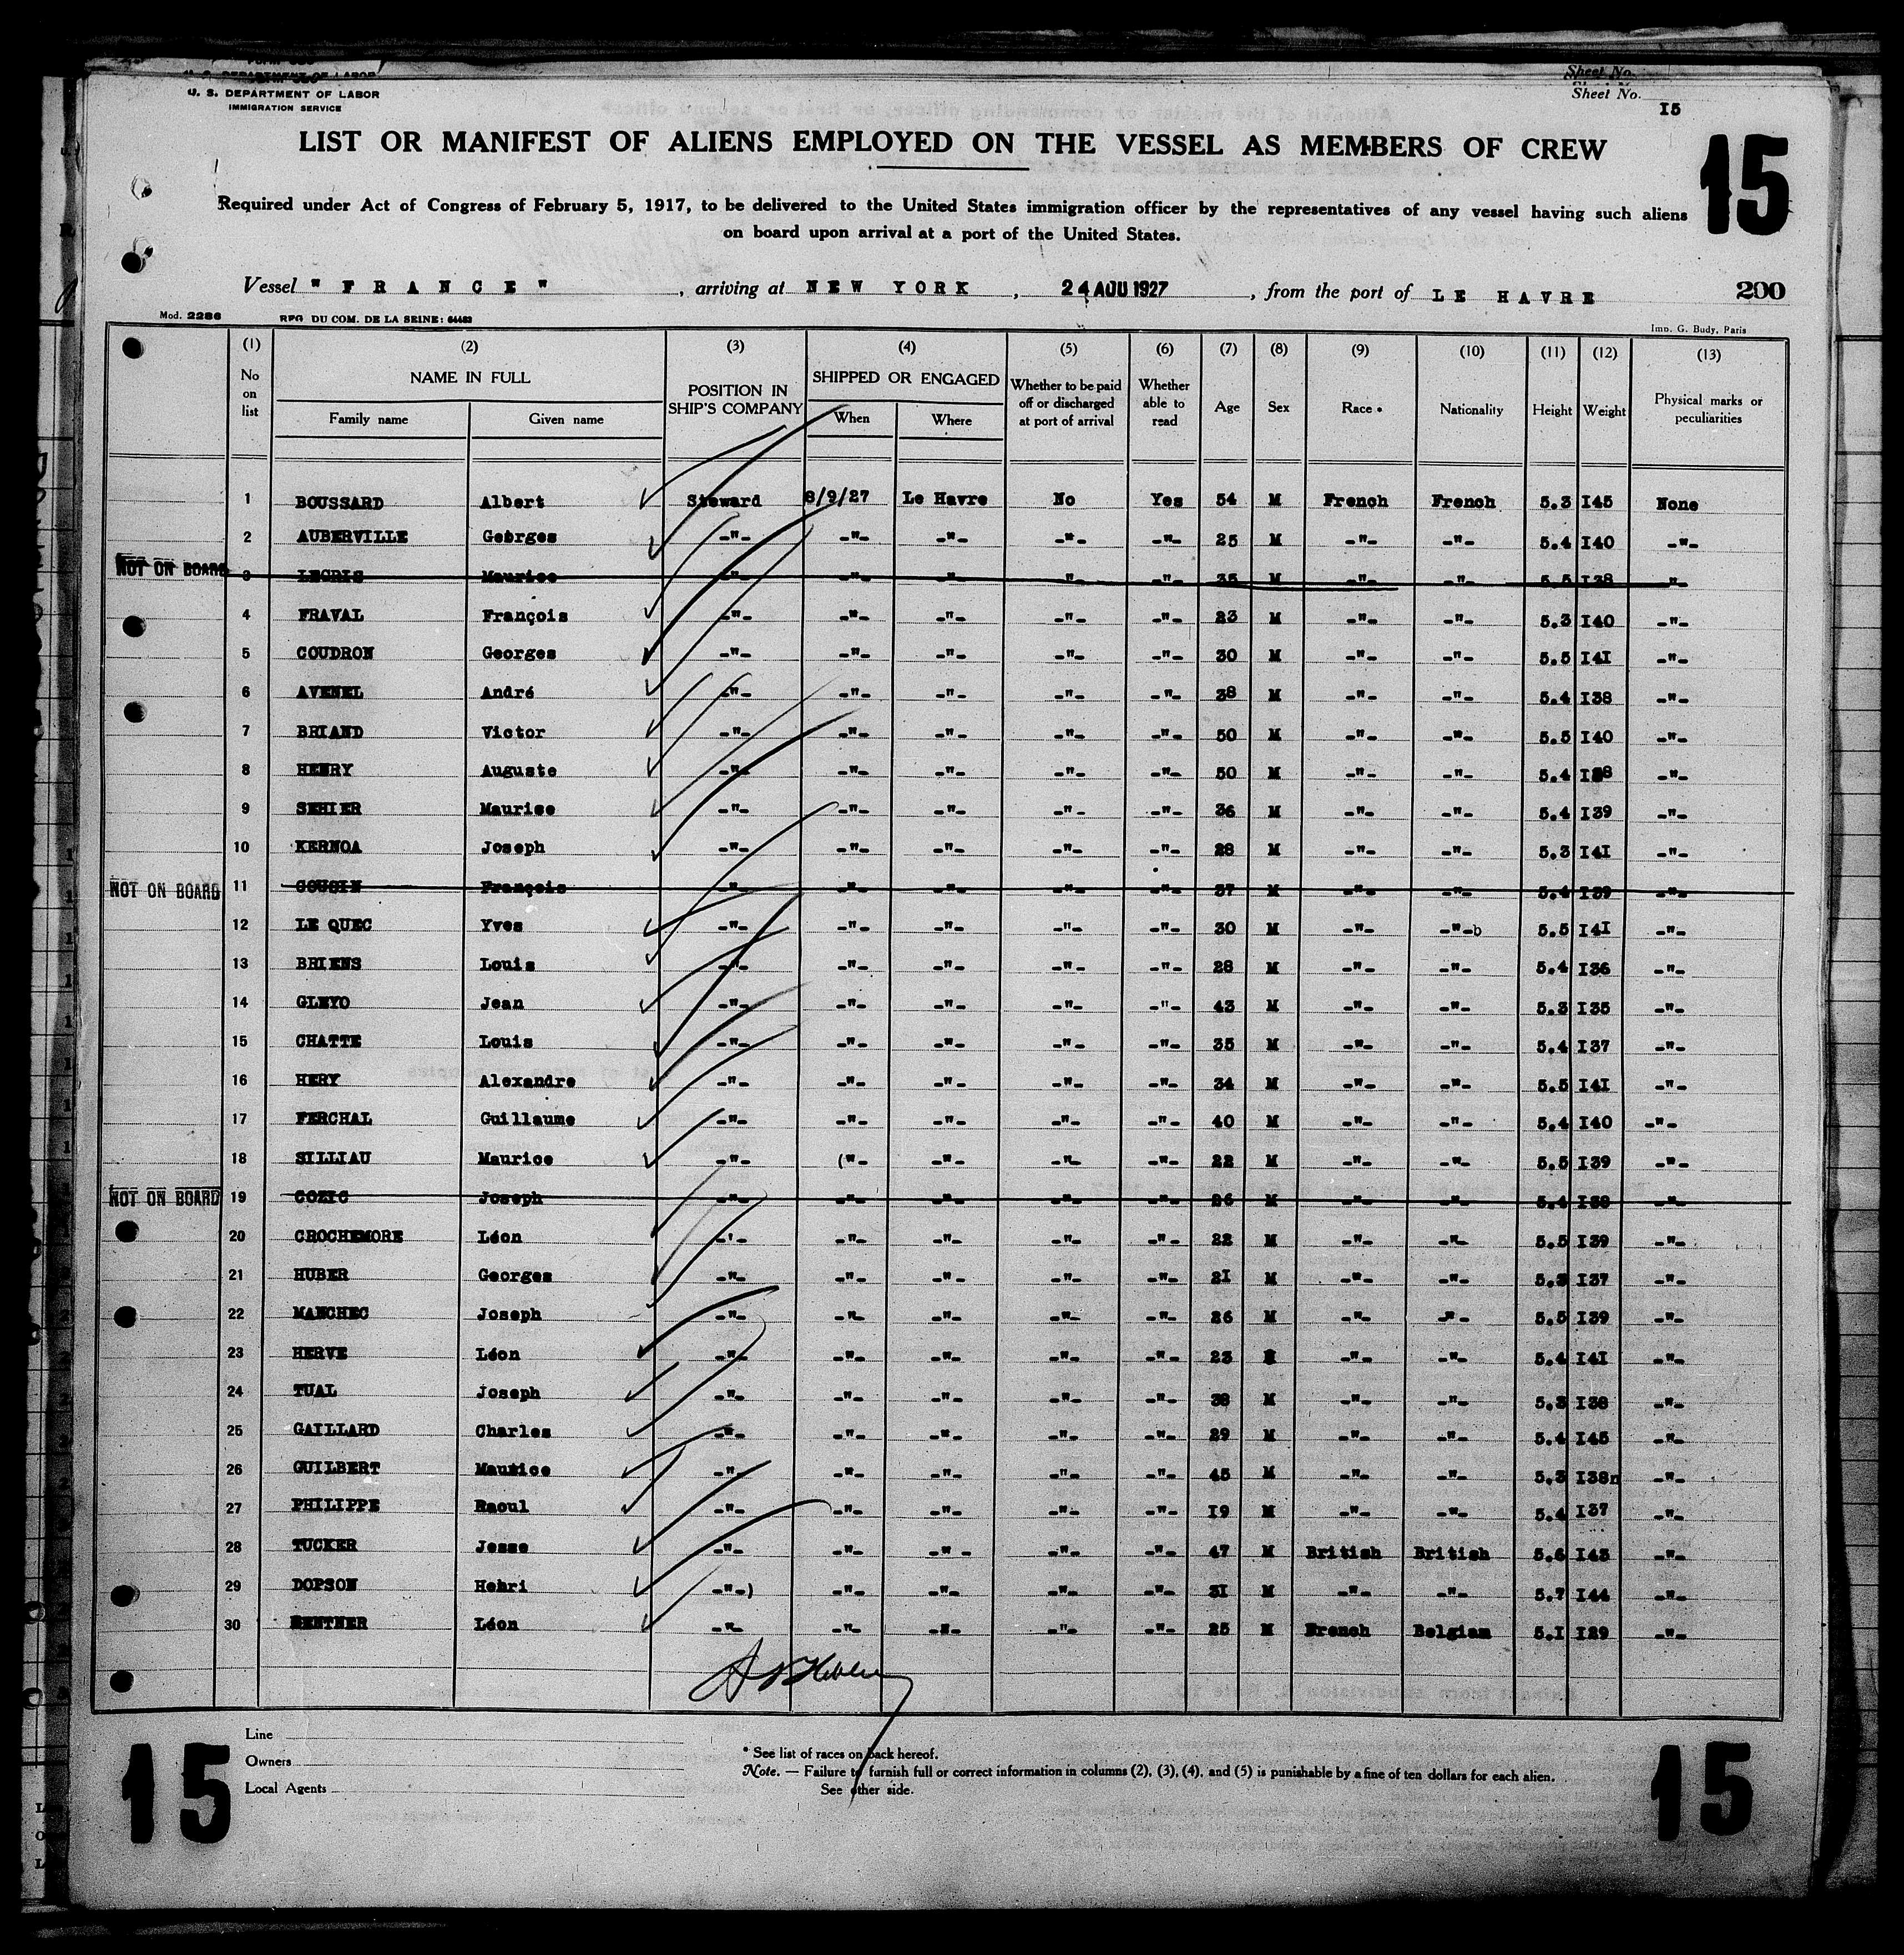 U. S. DEPARTMENT OF LABOR
IMMIGRATION SERVICE
Sheet No. I5
LIST OR MANIFEST OF ALIENS EMPLOYED ON THE VESSEL AS MEMBERS OF CREW
15
Required under Act of Congress of February 5, 1917, to be delivered to the United States immigration officer by the representatives of any vessel having such aliens
on board upon arrival at a port of the United States.
Vessel "FRANCE", arriving at NEW YORK, 24 AOU 1927, from the port of LE HAVRE 200
Mod. 2286 REG. DU COM. DE LA SEINE: Imp. G. Budy, Paris
(1) (2) (3) (4) (5) (6) (7) (8) (9) (10) (11) (12) (13)
No on list NAME IN FULL Family name Given name POSITION IN SHIP'S COMPANY SHIPPED OR ENGAGED When Where Whether to be paid off or discharged at port of arrival Whether able to read Age Sex Race * Nationality Height Weight Physical marks or peculiarities
1 BOUSSARD Albert Steward 8/9/27 Le Havre No Yes 54 M French French 5.3 I45 None
2 AUBERVILLE Georges -"- -"- -"- -"- -"- 25 M -"- -"- 5.4 I40 -"-
NOT ON BOARD 3 LEGRIS Maurice -"- -"- -"- " -"- 35 M -"- -"- 5.5 I38 "
4 FRAVAL François -"- -"- -"- -"- -"- 23 M -"- -"- 5.3 I40 -"-
5 COUDRON Georges -"- -"- -"- -"- -"- 30 M -"- -"- 5.5 I4I -"-
6 AVENEL André -"- -"- -"- -"- -"- 38 M -"- -"- 5.4 I38 -"-
7 BRIAND Victor -"- -"- -"- -"- -"- 50 M -"- -"- 5.5 I40 -"-
8 HENRY Auguste -"- -"- -"- -"- -"- 50 M -"- -"- 5.4 -"-
9 SEHIER Maurice -"- -"- -"- -"- -"- 36 M -"- -"- 5.4 I39 -"-
10 KERNOA Joseph -"- -"- -"- -"- -"- 28 M -"- -"- 5.3 I4I -"-
NOT ON BOARD 11 COUSIN François -"- -"- -"- -"- -"- 37 M -"- -"- 5.4 I39 -"-
12 LE QUEC Yves -"- -"- -"- -"- -"- 30 M -"- -"-b 5.5 I4I -"-
13 BRIENS Louis -"- -"- -"- -"- -"- 28 M -"- -"- 5.4 I36 -"-
14 GLEYO Jean -"- -"- -"- -"- -"- 43 M -"- -"- 5.3 I35 -"-
15 CHATTE Louis -"- -"- -"- -"- -"- 35 M -"- -"- 5.4 I37 -"-
16 HERY Alexandre -"- -"- -"- -"- -"- 34 M -"- -"- 5.5 I4I -"-
17 FERCHAL Guillaume -"- -"- -"- -"- -"- 40 M -"- -"- 5.4 I40 -"-
18 SILLIAU Maurice -"- ("- -"- -"- -"- 22 M -"- -"- 5.5 I39 -"-
NOT ON BOARD 19 COZIC Joseph -"- -"- -"- -"- -"- 26 M -"- -"- 5.4 -"-
20 CROCHEMORE Léon -'- -"- -"- -"- -"- 22 M -"- -"- 5.5 I39 -"-
21 HUBER Georges -"- -"- -"- -"- -"- 2I M -"- -"- 5.3 I37 -"-
22 MANCHEC Joseph -"- -"- -"- -"- -"- 26 M -"- -"- 5.5 I39 -"-
23 HERVE Léon -"- -"- -"- -"- -"- 23 -"- -"- 5.4 I4I -"-
24 TUAL Joseph -"- -"- -"- -"- -"- 38 M -"- -"- 5.3 I38 -"-
25 GAILLARD Charles -"- -"- -"- -"- -"- 29 M -"- -"- 5.4 I45 -"-
26 GUILBERT Maurice -"- -"- -"- -"- -"- 45 M -"- -"- 5.3 I38n -"-
27 PHILIPPE Raoul -"- -"- -"- -"- -"- I9 M -"- -"- 5.4 I37 -"-
28 TUCKER Jesse -"- -"- -"- -"- -"- 47 M British British 5.6 I43 -"-
29 DOPSON Henri -"-) -"- -"- -"- -"- 3I M -"- -"- 5.7 I44 -"-
30 Léon -"- -"- -"- -"- -"- 25 M French Belgian 5.I I29 -"-
Line
Owners
Local Agents
* See list of races on back hereof.
Note. — Failure to furnish full or correct information in columns (2), (3), (4), and (5) is punishable by a fine of ten dollars for each alien.
See other side.
15
15